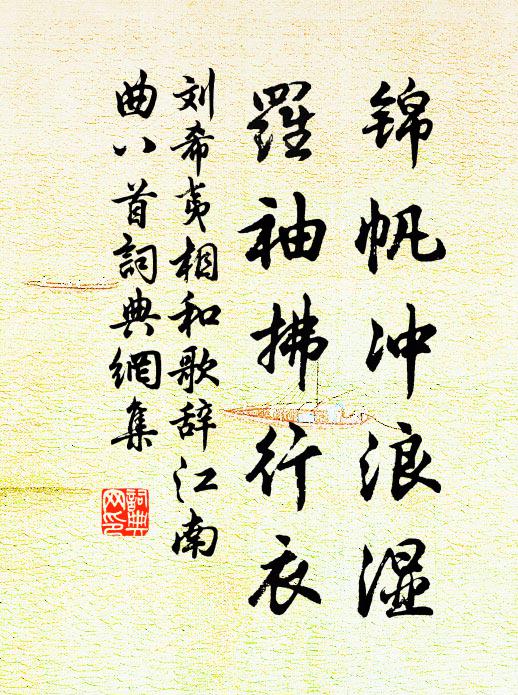 锦帆冲浪湿
羅袖拂行衣
刘希夷相和歌辞江南
曲八首詞典網集
詞典
网印